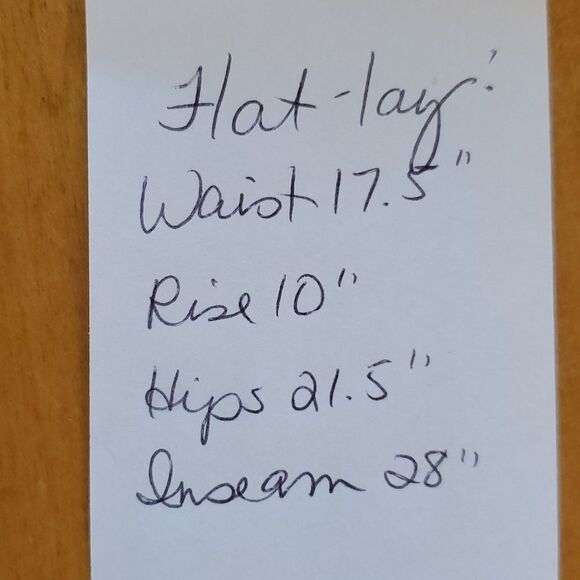 Flat-lay:
Waist 17.5"
Rise 10"
Hips 21.5"
Inseam 28"